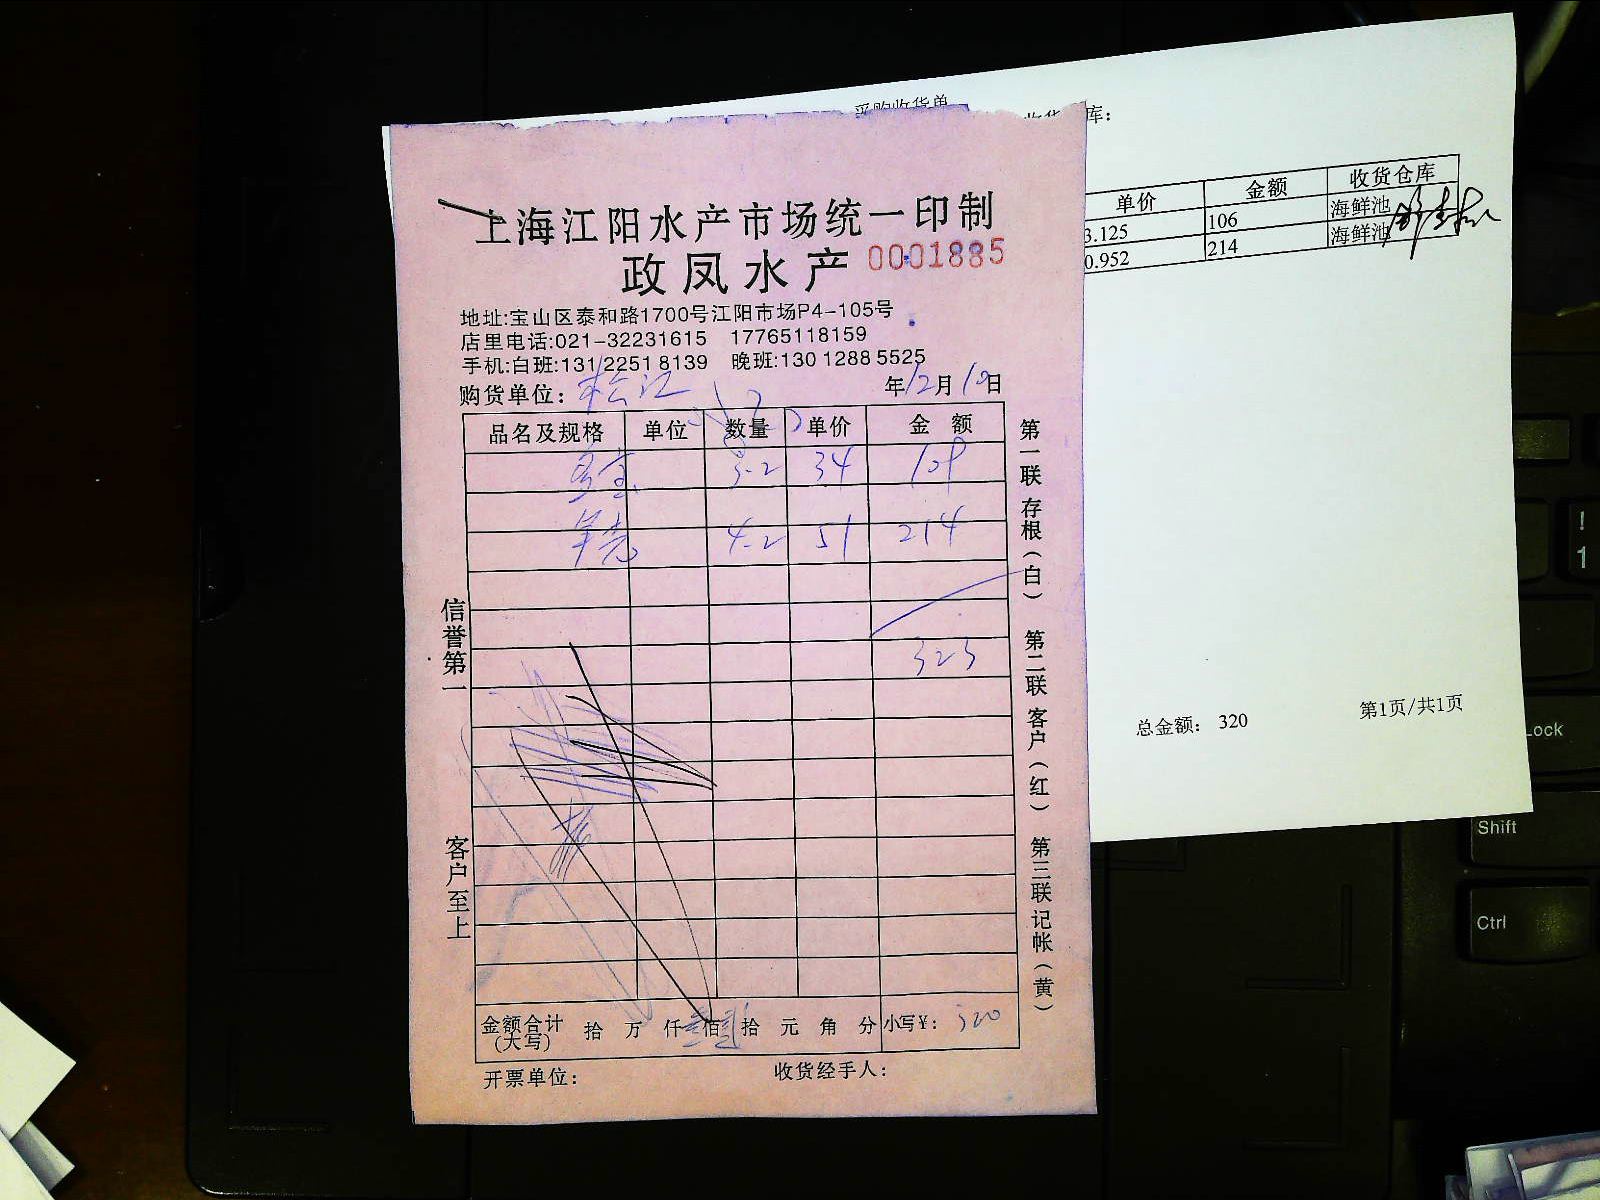 采购收货单
收货 库：
单价 金额 收货仓库
3.125 106 海鲜池
0.952 214 海鲜池
总金额： 320
第1页/共1页
上海江阳水产市场统一印制
政凤水产 0001885
地址:宝山区泰和路1700号江阳市场P4-105号
店里电话:021-32231615 17765118159
手机:白班:131 2251 8139 晚班:130 1288 5525
购货单位： 松江 年12月10日
品名及规格 单位 数量 单价 金额
多宝 3-2 34 109
4-2 51 214
323
金额合计(大写) 拾 万 仟 佰 拾 元 角 分 小写¥： 320
开票单位： 收货经手人：
信誉第一
客户至上
第一联存根(白) 第二联客户(红) 第三联记帐(黄)
!
1
Lock
Shift
Ctrl